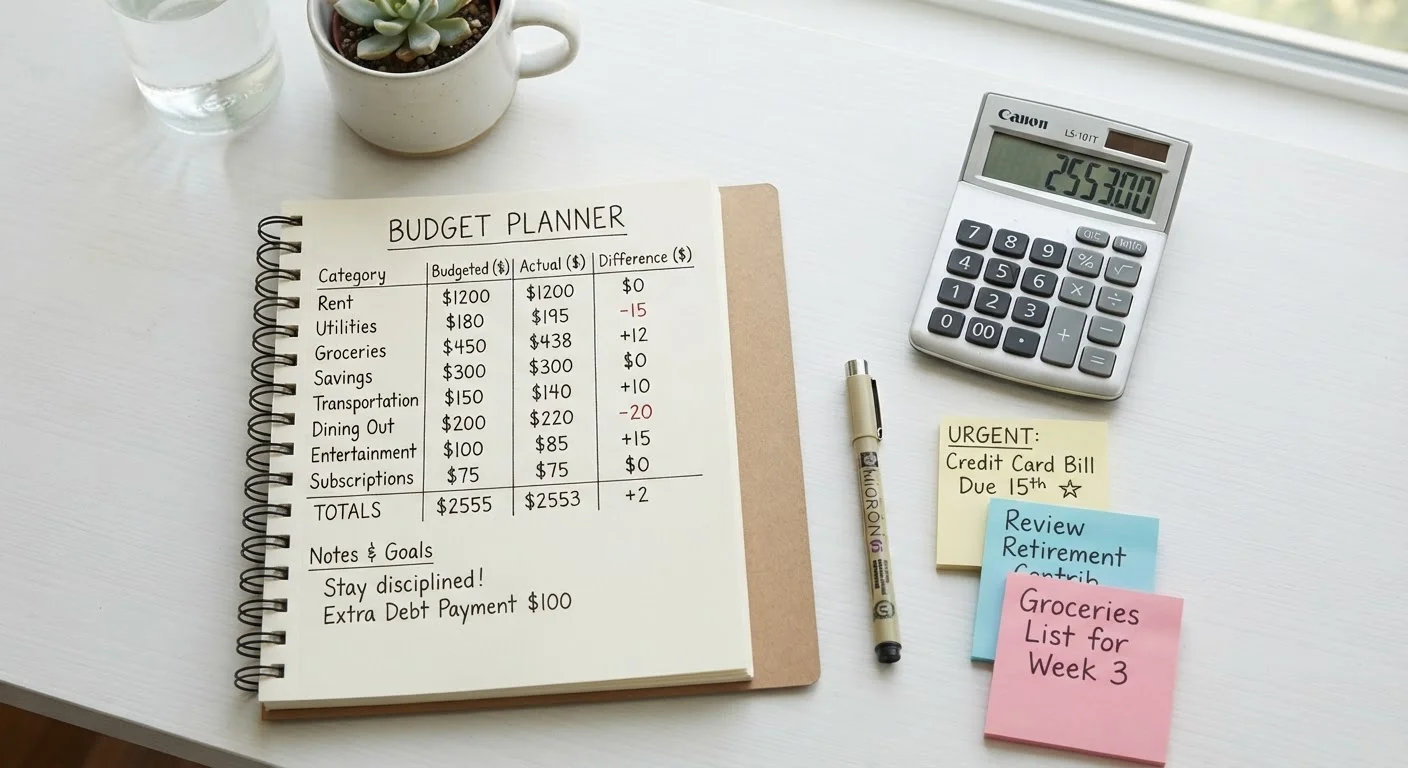 BUDGET PLANNER
Category Budgeted ($) Actual ($) Difference ($)
Rent $1200 $1200 $0
Utilities $180 $195 -15
Groceries $450 $438 +12
Savings $300 $300 $0
Transportation $150 $140 +10
Dining Out $200 $220 -20
Entertainment $100 $85 +15
Subscriptions $75 $75 $0
TOTALS $2555 $2553 +2
Notes & Goals
Stay disciplined!
Extra Debt Payment $100
Canon LS-101T
2553.00
7 8 9
4 5 6 % √
1 2 3 × ÷
0 00 . + − =
URGENT:
Credit Card Bill
Due 15th ☆
Review
Retirement
Contrib
Groceries
List for
Week 3